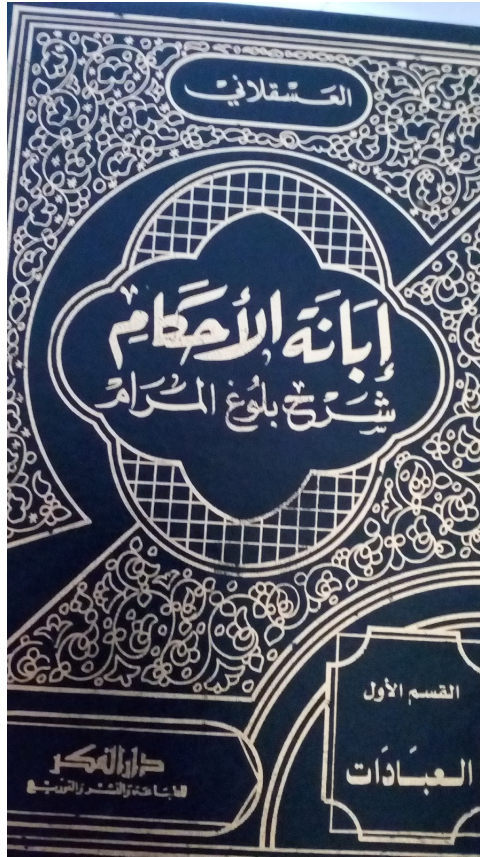 العسقلاني
إِبَانَة الأحكام
شَرح بلُوغ المرَام
القسم الأول
العبَادَات
دار الفكر
للطباعة والنشر والتوزيع